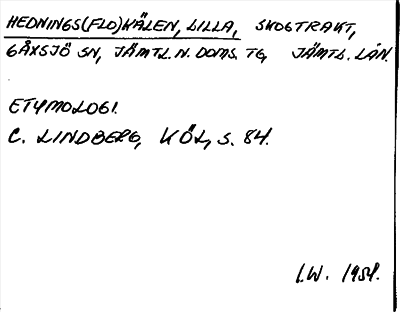 HEDNINGS(FLO)KÄLEN, LILLA, SKOGTRAKT,
GÅXSJÖ SN, JÄMTL. N. DOMS. TG, JÄMTL. LÄN.
ETYMOLOGI.
C. LINDBERG, KÖL, S. 84.
I.W. 1954.